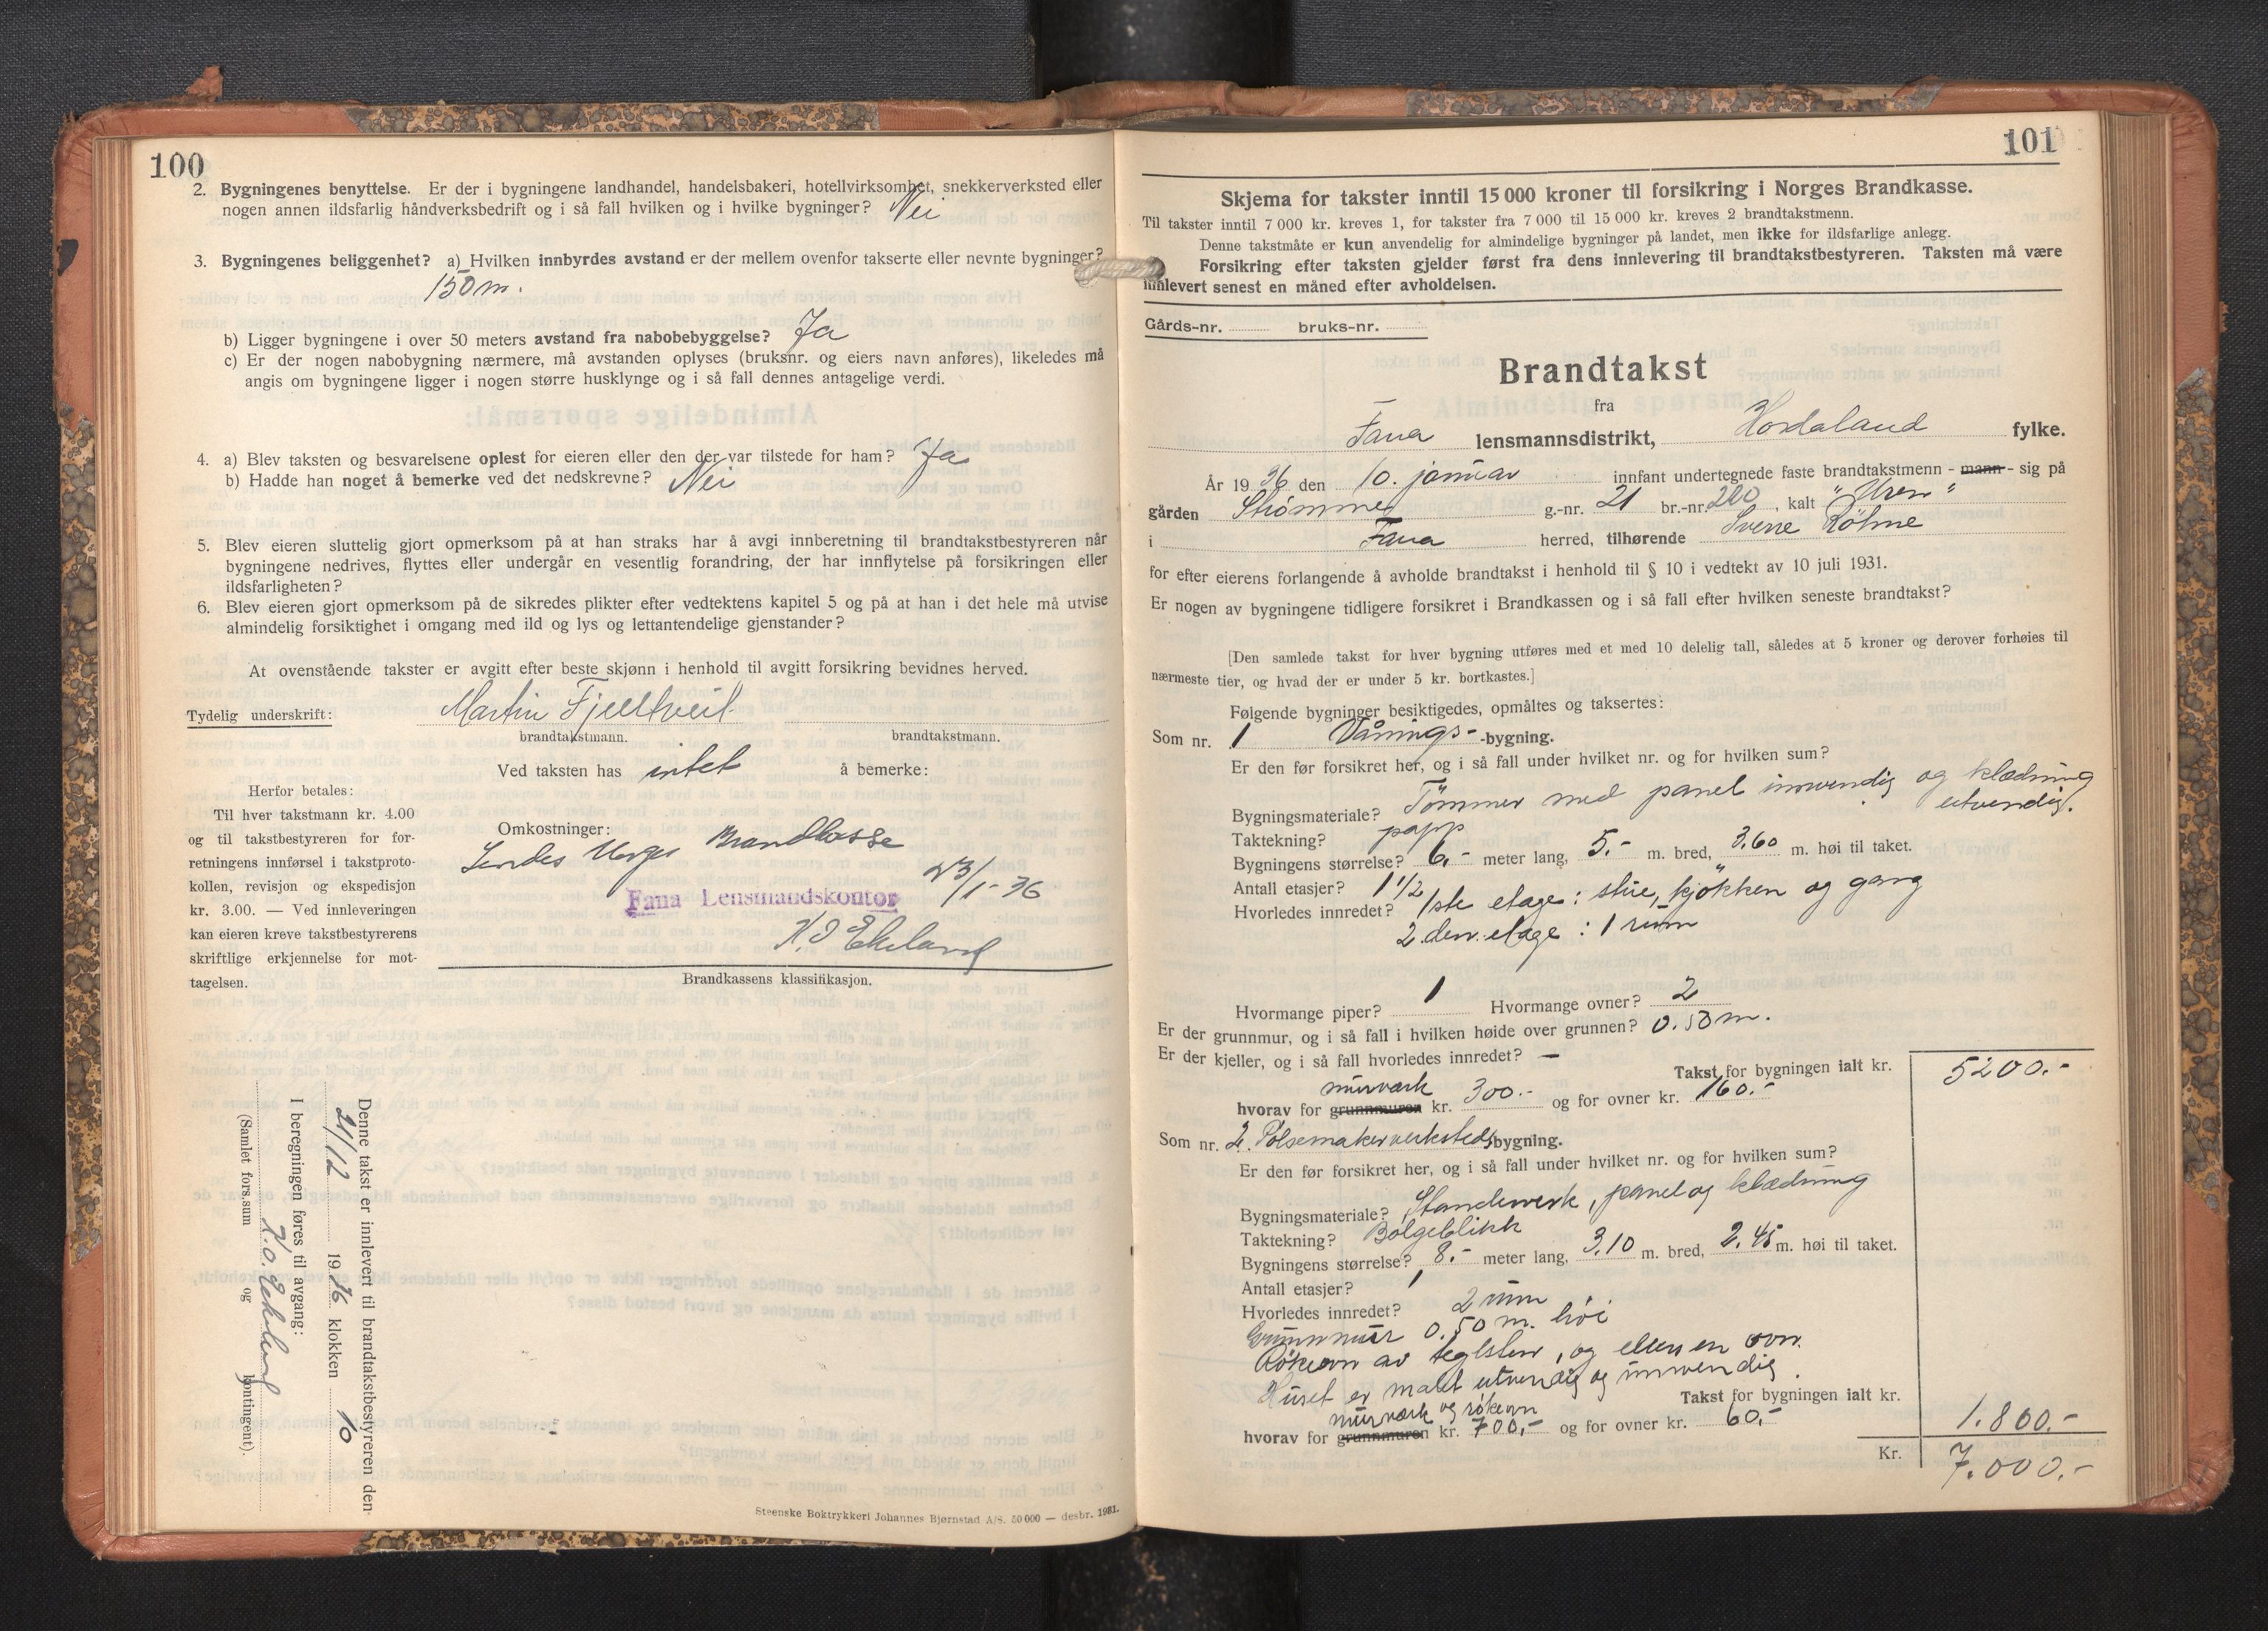 100
2. Bygningenes benyttelse. Er der i bygningene landhandel, handelsbakeri, hotellvirksomhet, snekkerverksted eller
nogen annen ildsfarlig håndverksbedrift og i så fall hvilken og i hvilke bygninger? Nei
3. Bygningenes beliggenhet? a) Hvilken innbyrdes avstand er der mellem ovenfor takserte eller nevnte bygninger?
150 m.
b) Ligger bygningene i over 50 meters avstand fra nabobebyggelse? Ja
c) Er der nogen nabobygning nærmere, må avstanden oplyses (bruksnr. og eiers navn anføres), likeledes må
angis om bygningene ligger i nogen større husklynge og i så fall dennes antagelige verdi.
4. a) Blev taksten og besvarelsene oplest for eieren eller den der var tilstede for ham? Ja
b) Hadde han noget å bemerke ved det nedskrevne? Nei
5. Blev eieren sluttelig gjort opmerksom på at han straks har å avgi innberetning til brandtakstbestyreren når
bygningene nedrives, flyttes eller undergår en vesentlig forandring, der har innflytelse på forsikringen eller
ildsfarligheten?
6. Blev eieren gjort opmerksom på de sikredes plikter efter vedtektens kapitel 5 og på at han i det hele må utvise
almindelig forsiktighet i omgang med ild og lys og lettantendelige gjenstander?
At ovenstående takster er avgitt efter beste skjønn i henhold til avgitt forsikring bevidnes herved.
Tydelig underskrift: Martin Fjelltveit
brandtakstmann. brandtakstmann.
Ved taksten has intet å bemerke:
Herfor betales:
Til hver takstmann kr. 4.00
og til takstbestyreren for for-
retningens innførsel i takstproto-
kollen, revisjon og ekspedisjon
kr. 3.00. — Ved innleveringen
kan eieren kreve takstbestyrerens
skriftlige erkjennelse for mot-
tagelsen.
Omkostninger:
Sendes Norges Brandkasse
23/1-36
Fana Lensmandskontor
K. O Ekeland
Brandkassens klassifikasjon.
Denne takst er innlevert til brandtakstbestyreren den
21/12 1936 klokken 10
I beregningen føres til avgang:
K. O. Ekeland
(Samlet fors.sum og kontingent).
Steenske Boktrykkeri Johannes Bjørnstad A/S. 50 000 — desbr. 1931.
101
Skjema for takster inntil 15 000 kroner til forsikring i Norges Brandkasse.
Til takster inntil 7 000 kr. kreves 1, for takster fra 7 000 til 15 000 kr. kreves 2 brandtakstmenn.
Denne takstmåte er kun anvendelig for almindelige bygninger på landet, men ikke for ildsfarlige anlegg.
Forsikring efter taksten gjelder først fra dens innlevering til brandtakstbestyreren. Taksten må være
innlevert senest en måned efter avholdelsen.
Gårds-nr. bruks-nr.
Brandtakst
fra
Fana lensmannsdistrikt, Hordaland fylke.
År 1936 den 10. januar innfant undertegnede faste brandtakstmenn - mann - sig på
gården Strømme g.-nr. 21 br.-nr. 200, kalt "Uren"
i Fana herred, tilhørende Sverre
for efter eierens forlangende å avholde brandtakst i henhold til § 10 i vedtekt av 10 juli 1931.
Er nogen av bygningene tidligere forsikret i Brandkassen og i så fall efter hvilken seneste brandtakst?
[Den samlede takst for hver bygning utføres med et med 10 delelig tall, således at 5 kroner og derover forhøies til
nærmeste tier, og hvad der er under 5 kr. bortkastes.]
Følgende bygninger besiktigedes, opmåltes og taksertes:
Som nr. 1 Vånings- -bygning.
Er den før forsikret her, og i så fall under hvilket nr. og for hvilken sum?
Bygningsmateriale? Tømmer med panel innvendig og klædning
utvendig.
Taktekning? papp
Bygningens størrelse? 6,- meter lang, 5.- m. bred, 3,60 m. høi til taket.
Antall etasjer? 1 1/2
Hvorledes innredet? 1ste etage: stue, kjøkken og gang
2den etage: 1 rum
Hvormange piper? 1 Hvormange ovner? 2
Er der grunnmur, og i så fall i hvilken høide over grunnen? 0.50 m.
Er der kjeller, og i så fall hvorledes innredet? —
Takst for bygningen ialt kr. 5200.-
murverk
hvorav for grunnmuren kr. 300.- og for ovner kr. 160.-
Som nr. 2. Pølsemakerverksteds bygning.
Er den før forsikret her, og i så fall under hvilket nr. og for hvilken sum?
Bygningsmateriale? Standerverk, panel og klædning
Taktekning? Bølgeblikk
Bygningens størrelse? 8.- meter lang, 3,10 m. bred, 2.45 m. høi til taket.
Antall etasjer? 1
Hvorledes innredet? 2 rum
Grunnmur 0.50 m. høi
Røkeovn av teglsten, og ellers en ovn.
Huset er malt utvendig og innvendig.
Takst for bygningen ialt kr. 1.800.-
murverk og røkeovn
hvorav for grunnmuren kr. 700,- og for ovner kr. 60,-
Kr. 7.000.-